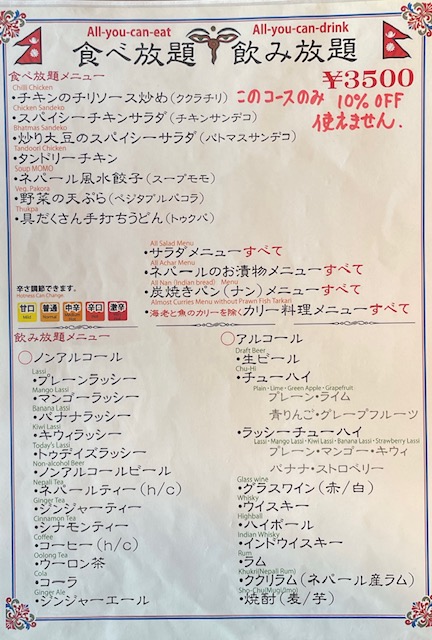 All-you-can-eat
All-you-can-drink
食べ放題 飲み放題
食べ放題メニュー
¥3500
このコースのみ 10% OFF
使えません.
Chilli Chicken
・チキンのチリソース炒め(ククラチリ)
Chicken Sandeko
・スパイシーチキンサラダ(チキンサンデコ)
Bhatmas Sandeko
・炒り大豆のスパイシーサラダ(バトマスサンデコ)
Tandoori Chicken
・タンドリーチキン
Soup MOMO
・ネパール風水餃子(スープモモ)
Veg. Pakora
・野菜の天ぷら(ベジタブルパコラ)
Thukpa
・具だくさん手打ちうどん(トゥクパ)
All Salad Menu
・サラダメニューすべて
All Achar Menu
・ネパールのお漬物メニューすべて
All Nan (Indian bread) Menu
・炭焼きパン(ナン)メニューすべて
Almost Curries Menu without Prawn Fish Tarkari
・海老と魚のカリーを除くカリー料理メニューすべて
辛さ調節できます。
Hotness Can Change
甘口 普通 中辛 辛口 激辛
飲み放題メニュー
○ノンアルコール
Lassi
・プレーンラッシー
Mango Lassi
・マンゴーラッシー
Banana Lassi
・バナナラッシー
Kiwi Lassi
・キウィラッシー
Today's Lassi
・トゥデイズラッシー
Non-alcohol Beer
・ノンアルコールビール
Nepali Tea
・ネパールティー(h/c)
Ginger Tea
・ジンジャーティー
Cinnamon Tea
・シナモンティー
Coffee
・コーヒー(h/c)
Oolong Tea
・ウーロン茶
Cola
・コーラ
Ginger Ale
・ジンジャーエール
○アルコール
Draft Beer
・生ビール
Chu-Hi
・チューハイ
Plain・Lime・Green Apple・Grapefruit
プレーン・ライム
青りんご・グレープフルーツ
・ラッシーチューハイ
Lassi・Mango Lassi・Kiwi Lassi・Banana Lassi・Strawberry Lassi
プレーン・マンゴー・キウィ
バナナ・ストロベリー
Glass wine
・グラスワイン(赤/白)
Whisky
・ウイスキー
Highball
・ハイボール
Indian Whisky
・インドウイスキー
Rum
・ラム
Khukri(Nepali Rum)
・ククリラム(ネパール産ラム)
Sho-Chu(Mugi/Imo)
・焼酎(麦/芋)